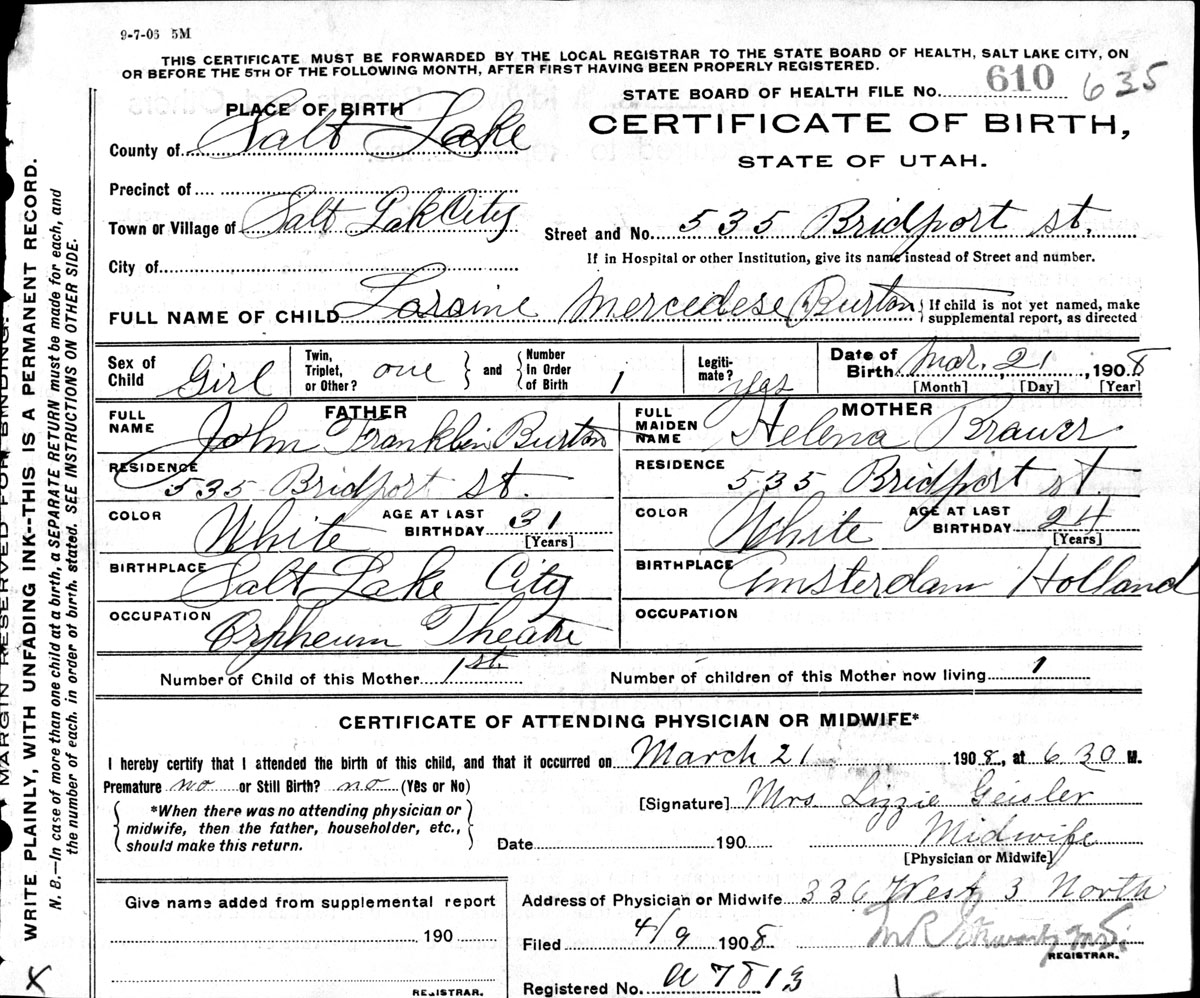 9-7-06 5M
THIS CERTIFICATE MUST BE FORWARDED BY THE LOCAL REGISTRAR TO THE STATE BOARD OF HEALTH, SALT LAKE CITY, ON
OR BEFORE THE 5TH OF THE FOLLOWING MONTH, AFTER FIRST HAVING BEEN PROPERLY REGISTERED.
STATE BOARD OF HEALTH FILE No. 610 635
PLACE OF BIRTH
CERTIFICATE OF BIRTH,
STATE OF UTAH.
County of Salt Lake
Precinct of
Town or Village of Salt Lak City
Street and No. 535 Bridport st.
City of
If in Hospital or other Institution, give its name instead of Street and number.
FULL NAME OF CHILD Loraine Mercedese Burton
If child is not yet named, make
supplemental report, as directed
Sex of Child Girl
Twin, Triplet, or Other? one and Number In Order of Birth 1
Legitimate? yes
Date of Birth Mar. 21, 1908
[Month] [Day] [Year]
FATHER
FULL NAME John Franklin Burton
RESIDENCE 535 Bridport st.
COLOR White AGE AT LAST BIRTHDAY 31
[Years]
BIRTHPLACE Salt Lake City
OCCUPATION Orpheum Theatre
MOTHER
FULL MAIDEN NAME Helena Brauer
RESIDENCE 535 Bridport st.
COLOR White AGE AT LAST BIRTHDAY 24
[Years]
BIRTHPLACE Amsterdam Holland
OCCUPATION
Number of Child of this Mother 1st.
Number of children of this Mother now living 1
CERTIFICATE OF ATTENDING PHYSICIAN OR MIDWIFE*
I hereby certify that I attended the birth of this child, and that it occurred on March 21 1908, at 6 30 M.
Premature no or Still Birth? no (Yes or No)
*When there was no attending physician or
midwife, then the father, householder, etc.,
should make this return.
[Signature] Mrs. Lizzie Geisler
Date 190 Midwife
[Physician or Midwife]
Give name added from supplemental report
190
REGISTRAR.
Address of Physician or Midwife 336 West 3 North
Filed 4/9 1908
REGISTRAR.
Registered No. a 7813
MARGIN RESERVED FOR BINDING.
WRITE PLAINLY, WITH UNFADING INK--THIS IS A PERMANENT RECORD.
N. B.—In case of more than one child at a birth, a SEPARATE RETURN must be made for each, and
the number of each, in order of birth, stated. SEE INSTRUCTIONS ON OTHER SIDE.
X